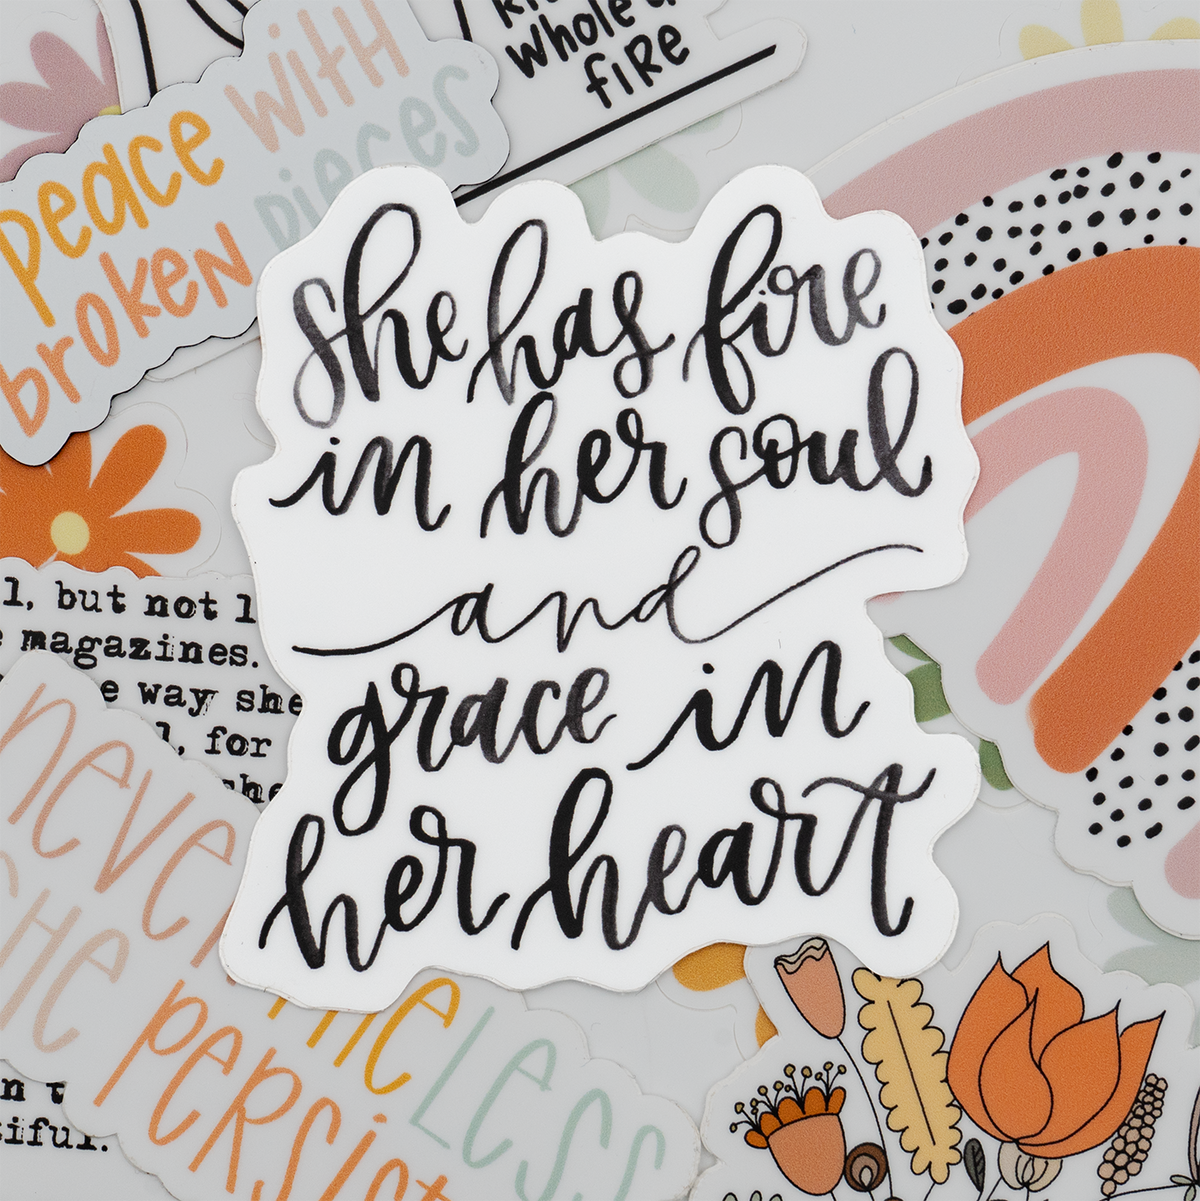 whole
fire
peace with
broken pieces
she has fire
in her soul
and
grace in
her heart
l, but not l
magazines.
e way she
l, for
she
never
she
persist
less
iful.